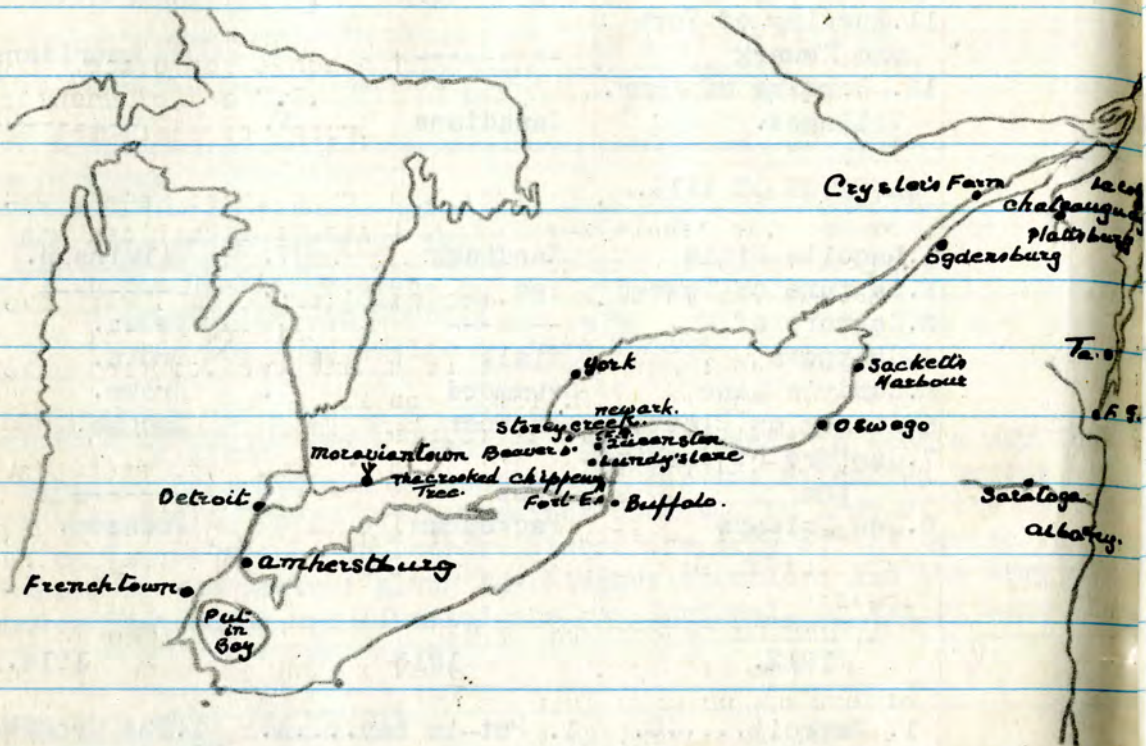 Crysler's Farm
Chateauguay
Plattsburg
Ogdensburg
York
Sacketts
Harbour
newark.
Stoney creek.
Queenston
Oswego
Ta.
F.G.
Moraviantown
Beaver D.
Lundy's Lane
The crooked
Tree.
Chippewa
Detroit
Fort E.
Buffalo.
Saratoga
Albany.
amherstburg
Frenchtown
Put
in
Bay